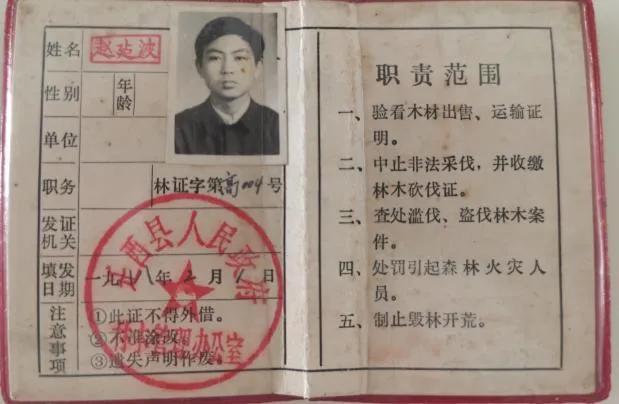 姓名 赵延波
性别 年龄
单位
职务 林证字第高004号
发证机关
填发日期 一九 八年 2月1日
注意事项
①此证不得外借。
②不准涂改。
③遗失声明作废。
西县人民政府
林木管理办公室
职责范围
一、验看木材出售、运输证
明。
二、中止非法采伐，并收缴
林木砍伐证。
三、查处滥伐、盗伐林木案
件。
四、处罚引起森林火灾人
员。
五、制止毁林开荒。